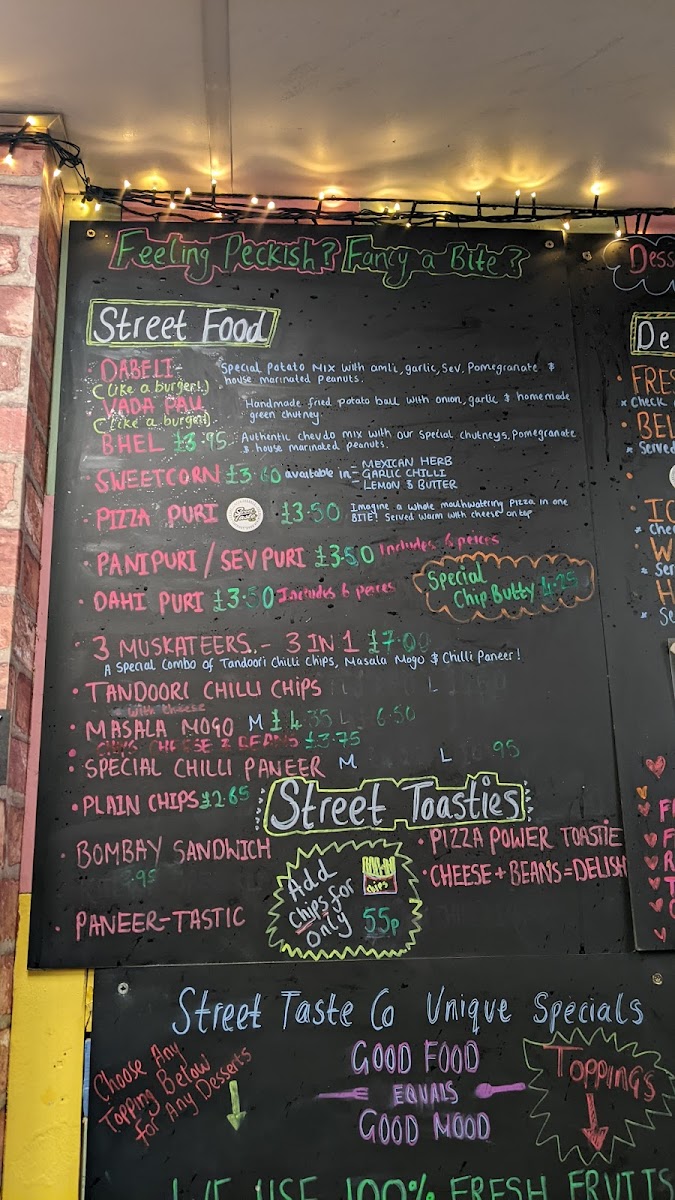 Feeling Peckish? Fancy a Bite?
Street Food
DABELI - Special Potato Mix with amli, garlic, Sev, Pomegranate &
house marinated peanuts.
(Like a burger!)
VADA PAU Handmade fried potato ball with onion, garlic & homemade
green chutney
(Like a burger!)
BHEL £3.95 Authentic chevdo mix with our special chutneys, Pomegranate
& house marinated peanuts.
SWEETCORN £3.60 available in - MEXICAN HERB
- GARLIC CHILLI
- LEMON & BUTTER
PIZZA PURI £3.50 Imagine a whole mouthwatering Pizza in one
BITE! Served warm with cheese on top
PANIPURI / SEVPURI £3.50 Includes 6 peices
DAHI PURI £3.50 Includes 6 peices
Special
Chip Butty 4.25
3 MUSKATEERS - 3 IN 1 £7.00
A Special Combo of Tandoori Chilli Chips, Masala Mogo & Chilli Paneer!
TANDOORI CHILLI CHIPS L
with cheese
MASALA MOGO M £4.35 L 6.50
CHIPS CHEESE & BEANS £3.75
SPECIAL CHILLI PANEER M L 95
PLAIN CHIPS £2.65
Street Toasties
BOMBAY SANDWICH
.95
PANEER-TASTIC
Add
chips for
only 55p
chips
PIZZA POWER TOASTIE
CHEESE + BEANS = DELISH
Street Taste Co Unique Specials
Choose Any
Topping Below
for Any Desserts
GOOD FOOD
EQUALS
GOOD MOOD
TOPPINGS
WE USE 100% FRESH FRUITS
Dess
De
FRES
check
BEL
Served
Ser